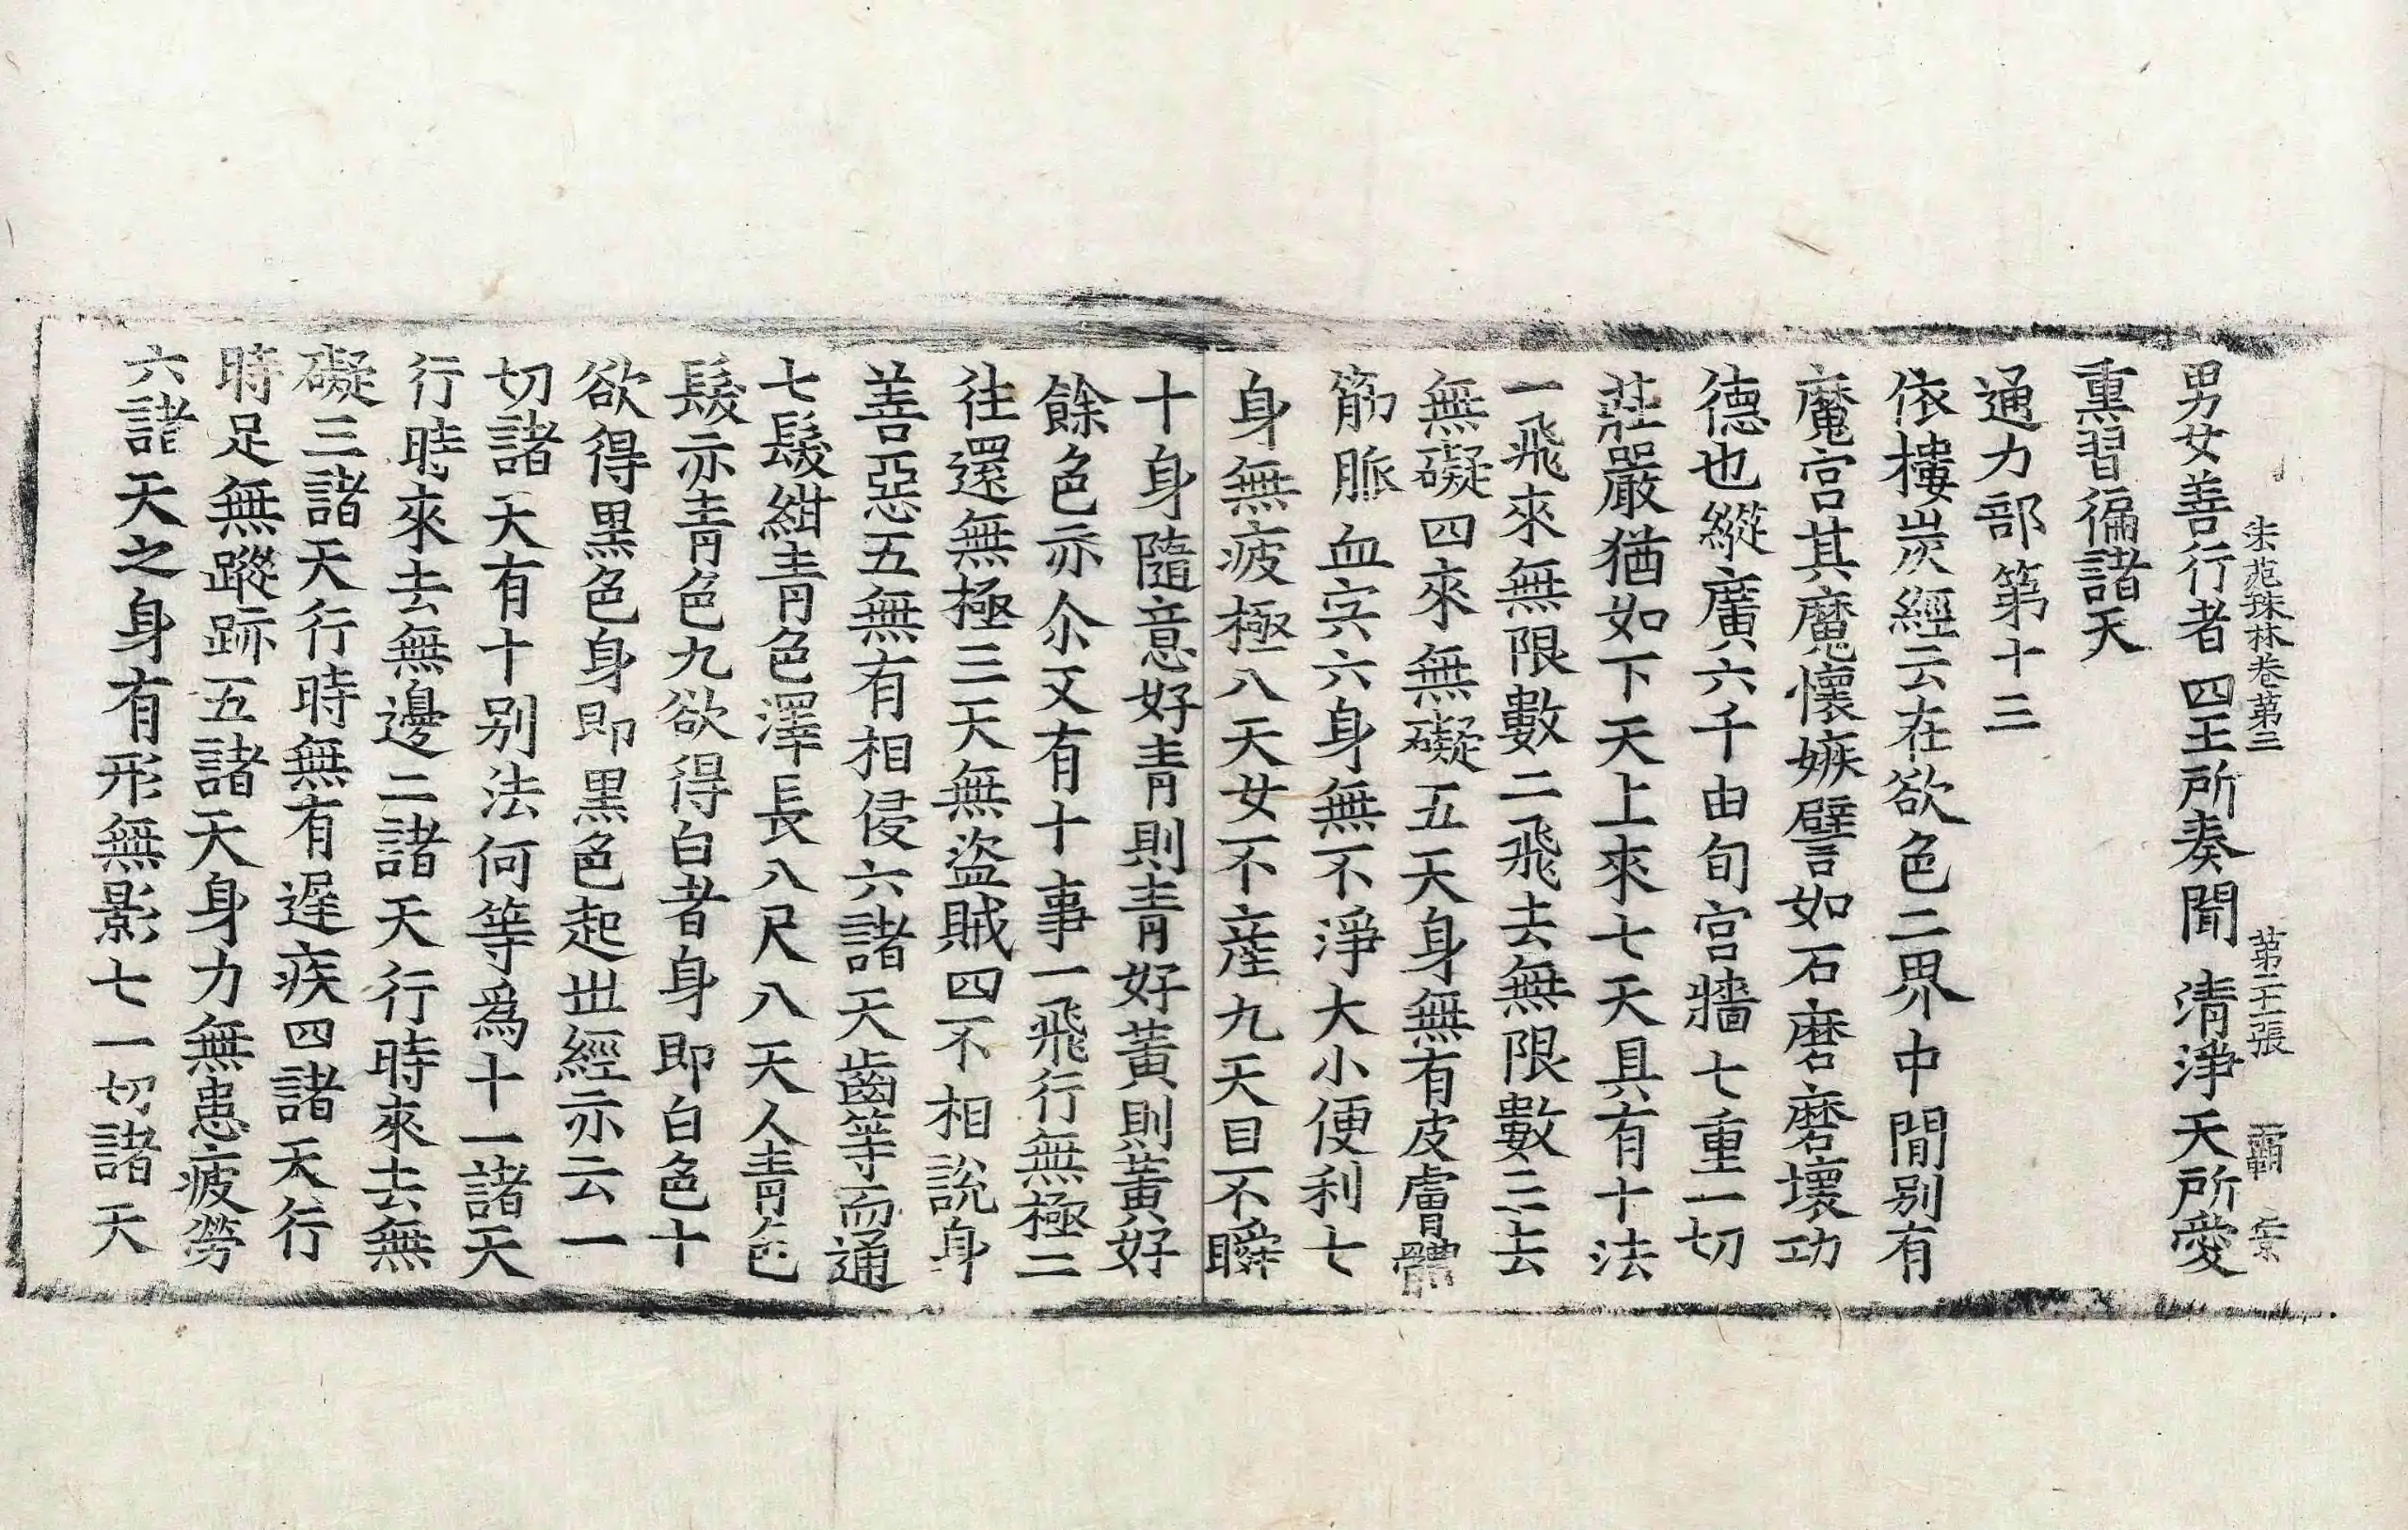 法苑珠林卷第三 第二十張 霸 字
男女善行者四王所奏聞 清淨天所愛
熏習徧諸天
通力部第十三
依樓炭經云在欲色二界中閒别有
魔宫其魔懷嫉譬如石磨磨壞功
德也縱廣六千由旬宫牆七重一切
莊嚴猶如下天上來七天具有十法
一飛來無限數二飛去無限數三去
無礙四來無礙五天身無有皮膚體
筋脈血宍六身無不淨大小便利七
身無疲極八天女不産九天目不瞬
十身隨意好青則青好黃則黃好
餘色亦尒又有十事一飛行無極二
往還無極三天無盜賊四不相說身
善惡五無有相侵六諸天齒等而通
七髮紺青色澤長八尺八天人青色
髮亦青色九欲得白者身即白色十
欲得黒色身即黒色起世經亦云一
切諸天有十别法何等爲十一諸天
行時來去無邊二諸天行時來去無
礙三諸天行時無有遲疾四諸天行
時足無蹤跡五諸天身力無患疲勞
六諸天之身有形無影七一切諸天